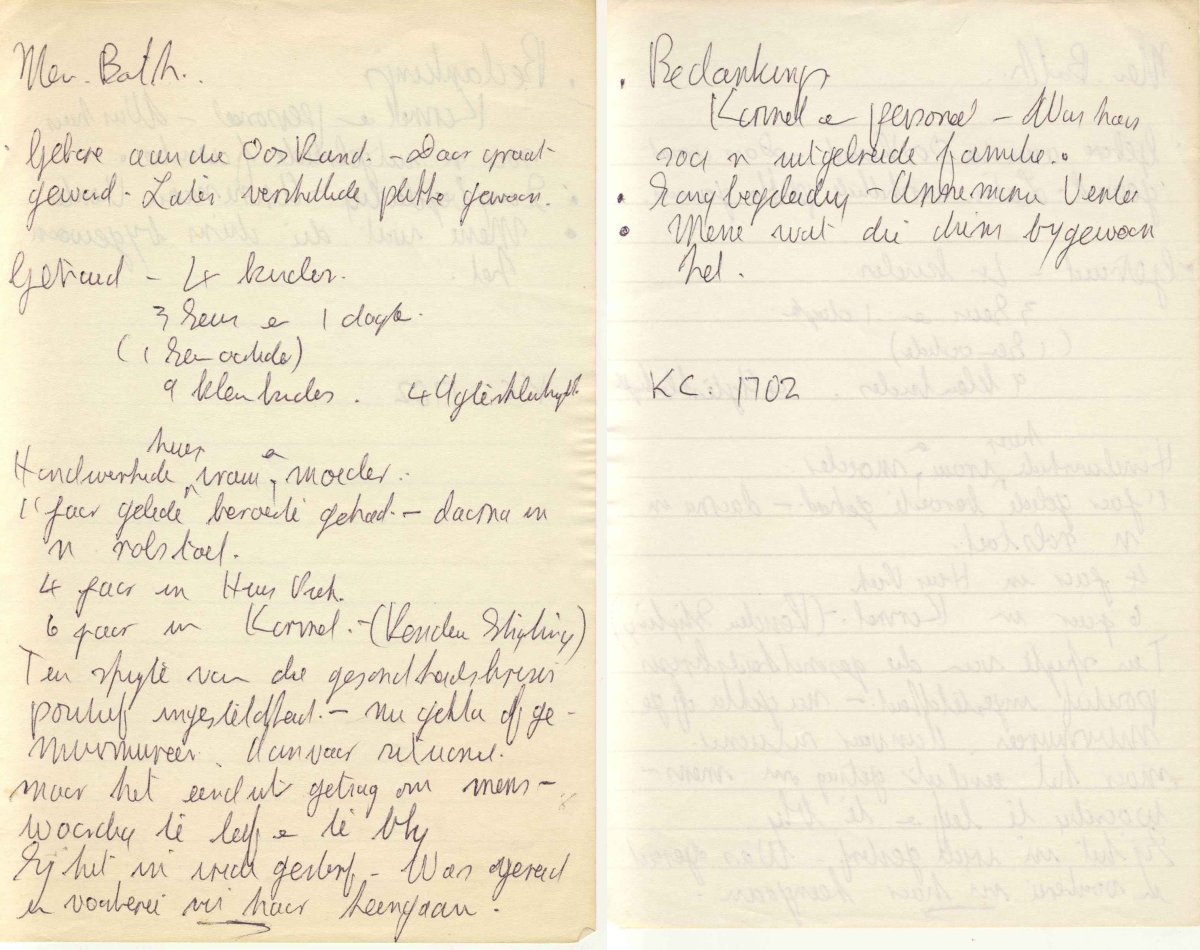 Mev. Both.
Gebore aan die Oos Rand. - Daar groot
geword - Later verskillende plekke gewoon.
Getroud - 4 kinders.
3 seuns en 1 dogter.
(1 seun oorlede)
9 kleinkinders. 4 Agterkleinkinders
huis en
Hardwerkende vrou, moeder.
11 jaar gelede beroerte gehad. - daarna in
'n rolstoel.
4 jaar in Huis
6 jaar in Kornel. - (Stigting)
Ten spyte van die gesondheidskrisis
positief ingesteldheid. - nie gekla of ge-
murmureer. Aanvaar situasie.
maar het eerder uit getrag om mens-
waardig te leef en te bly
Sy het in vrede gesterf - Was gereed
en voorberei vir haar heengaan.
• Bedankings
Kornel en personeel - Was haar
soos 'n uitgebreide familie.
• Sangbegeleiding - Annemarie Venter
• Mense wat die diens bygewoon
het.
KC. 1702